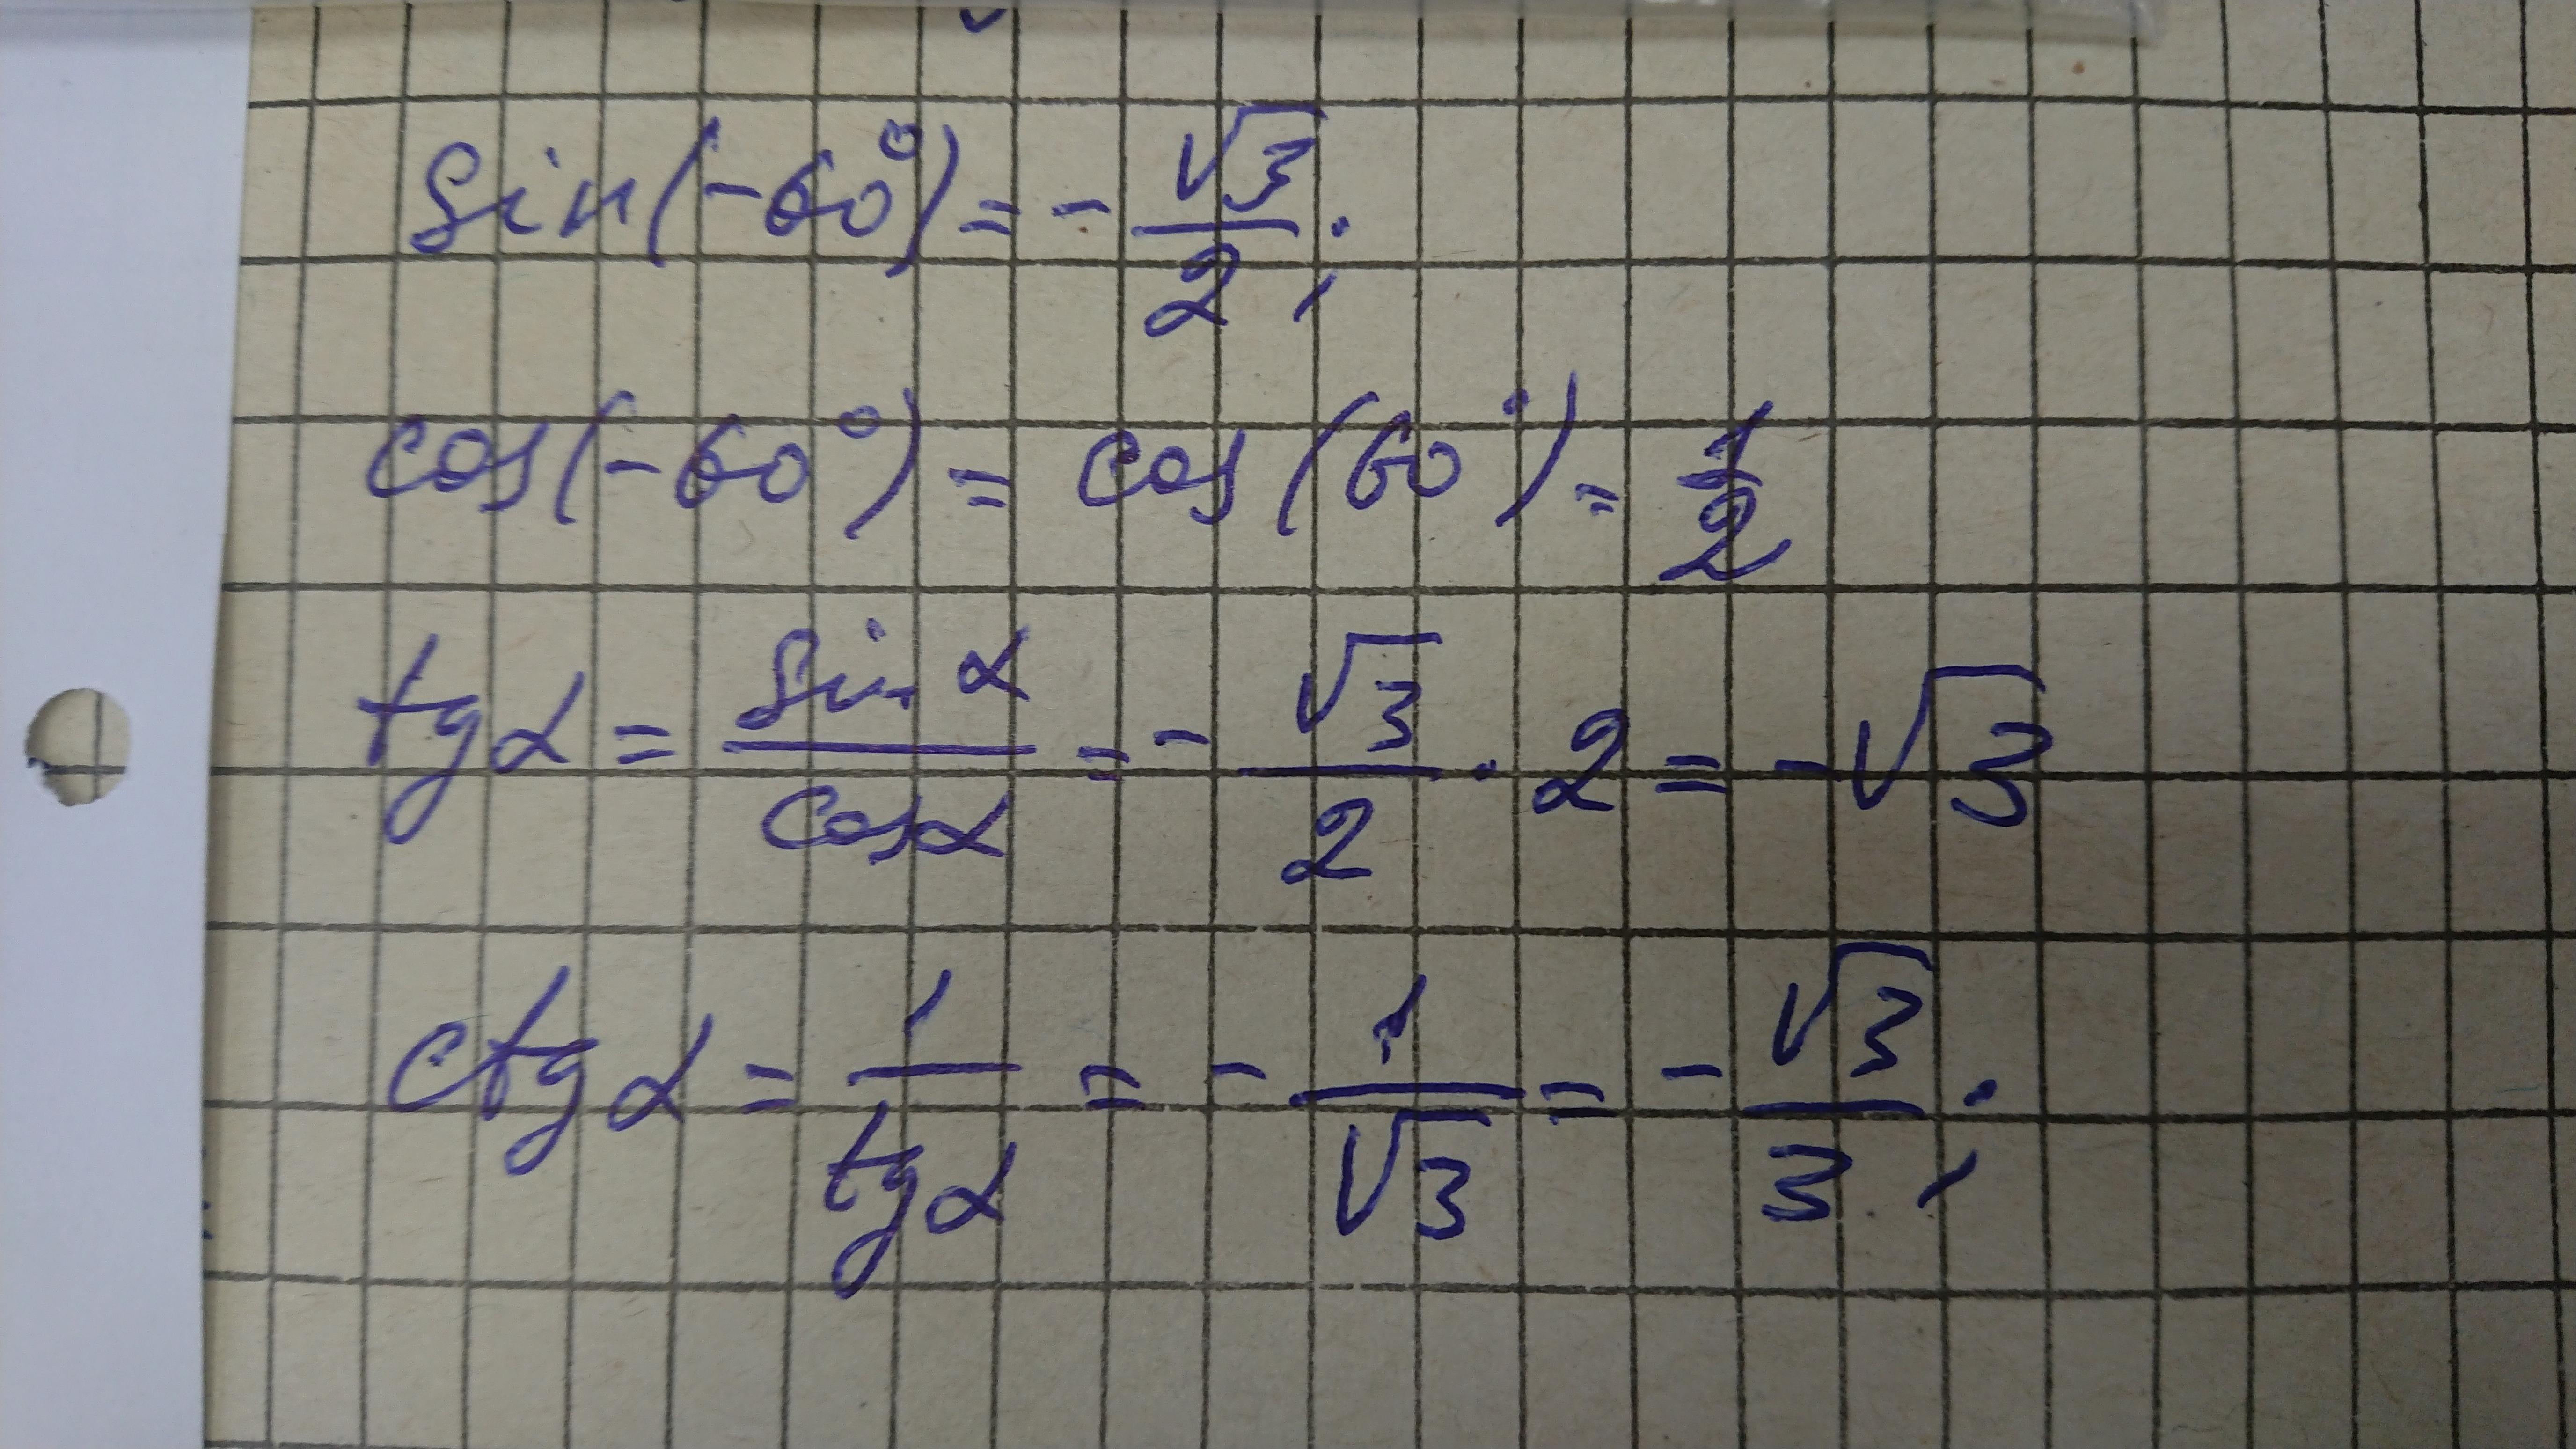 sin(-60°) = - √3/2;
cos(-60°) = cos(60°) = 1/2
tg α = sin α/cos α = - √3/2 · 2 = -√3
ctg α = 1/tg α = - 1/√3 = - √3/3;